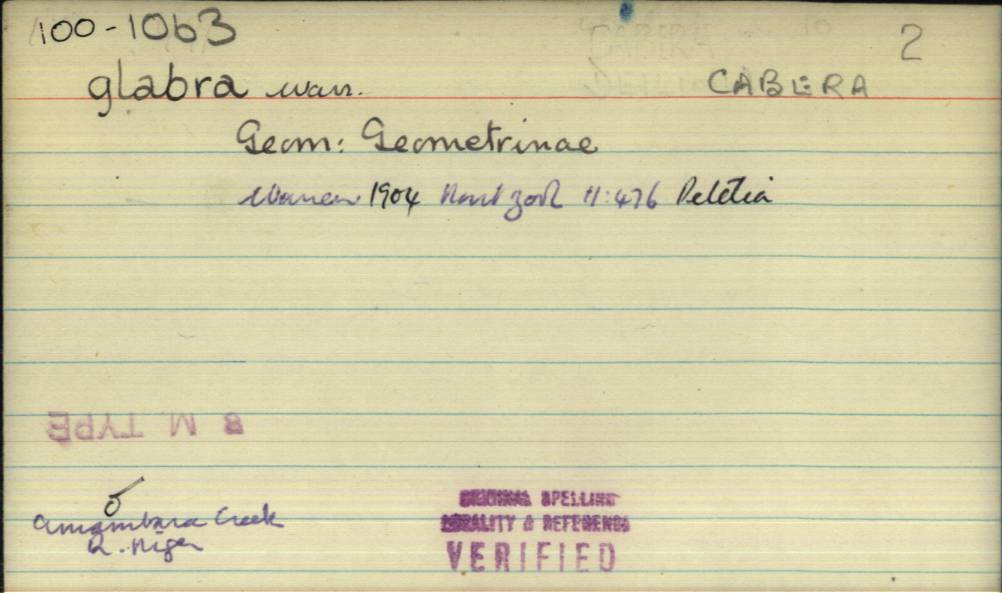 100-1063
2
glabra Warr. CABERA
Geom: Geometrinae
Warren 1904 Novit zool 11:476 Peletia
B M TYPE
♂
Anambara Creek
R. Niger
ORIGINAL SPELLING
LOCALITY & REFERENCE
VERIFIED